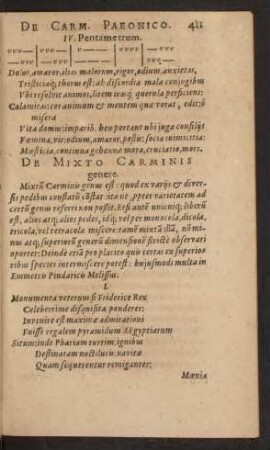 DE CARM. PAEONICO. 411
IV. Pentametrum.
Dolor, amaror, altus malorum, rigor, odium, anxietas,
Tristiciaq; thorus est: ab discordia mala conjugibus
Ubi resolvit animos, litem usuq; querula perficiens:
Calamitas: cor animum & mentem quæ vorat,
misera
Vita domus: imparib. heu portant ubi juga consilijs
Fœmina, vir: odium, amaror, pestis: socia
Mæsticia. continua gehenna mora, cruciatio, mors.
DE MIXTO CARMINIS
genere.
Mixtũ Carminis genus est: quod ex varijs & diver-
sis pedibus constatũ cõstat: ita ut, ppter varietatem ad
certũ genus referri non possit. Est autẽ unicuiq; liberũ
est, aliosatq; alios pedes, idq; vel per monocola, dicola,
tricola, vel tetracola miscere: tamẽ mixtũ illã, nõ mi-
nus atq; superiorũ generũ dimensionẽ strictè observari
oportet: Deinde etiã pro lasito quis certas ex superio-
ribus species intermiscere potest: hujusmodi multa in
Emmetris Pindaricis Melissus.
I.
Monumenta veterum si Friderice Rex
Celeberrime disquisita ponderes:
Invenire est maximæ admirationi
Fuisse regalem pyramidum Ægyptiarum
Situm: inde Phariam turrim, ignibus
Destinatam noctilucis navitæ
Quam sequerentur remigantes:
Mœnia